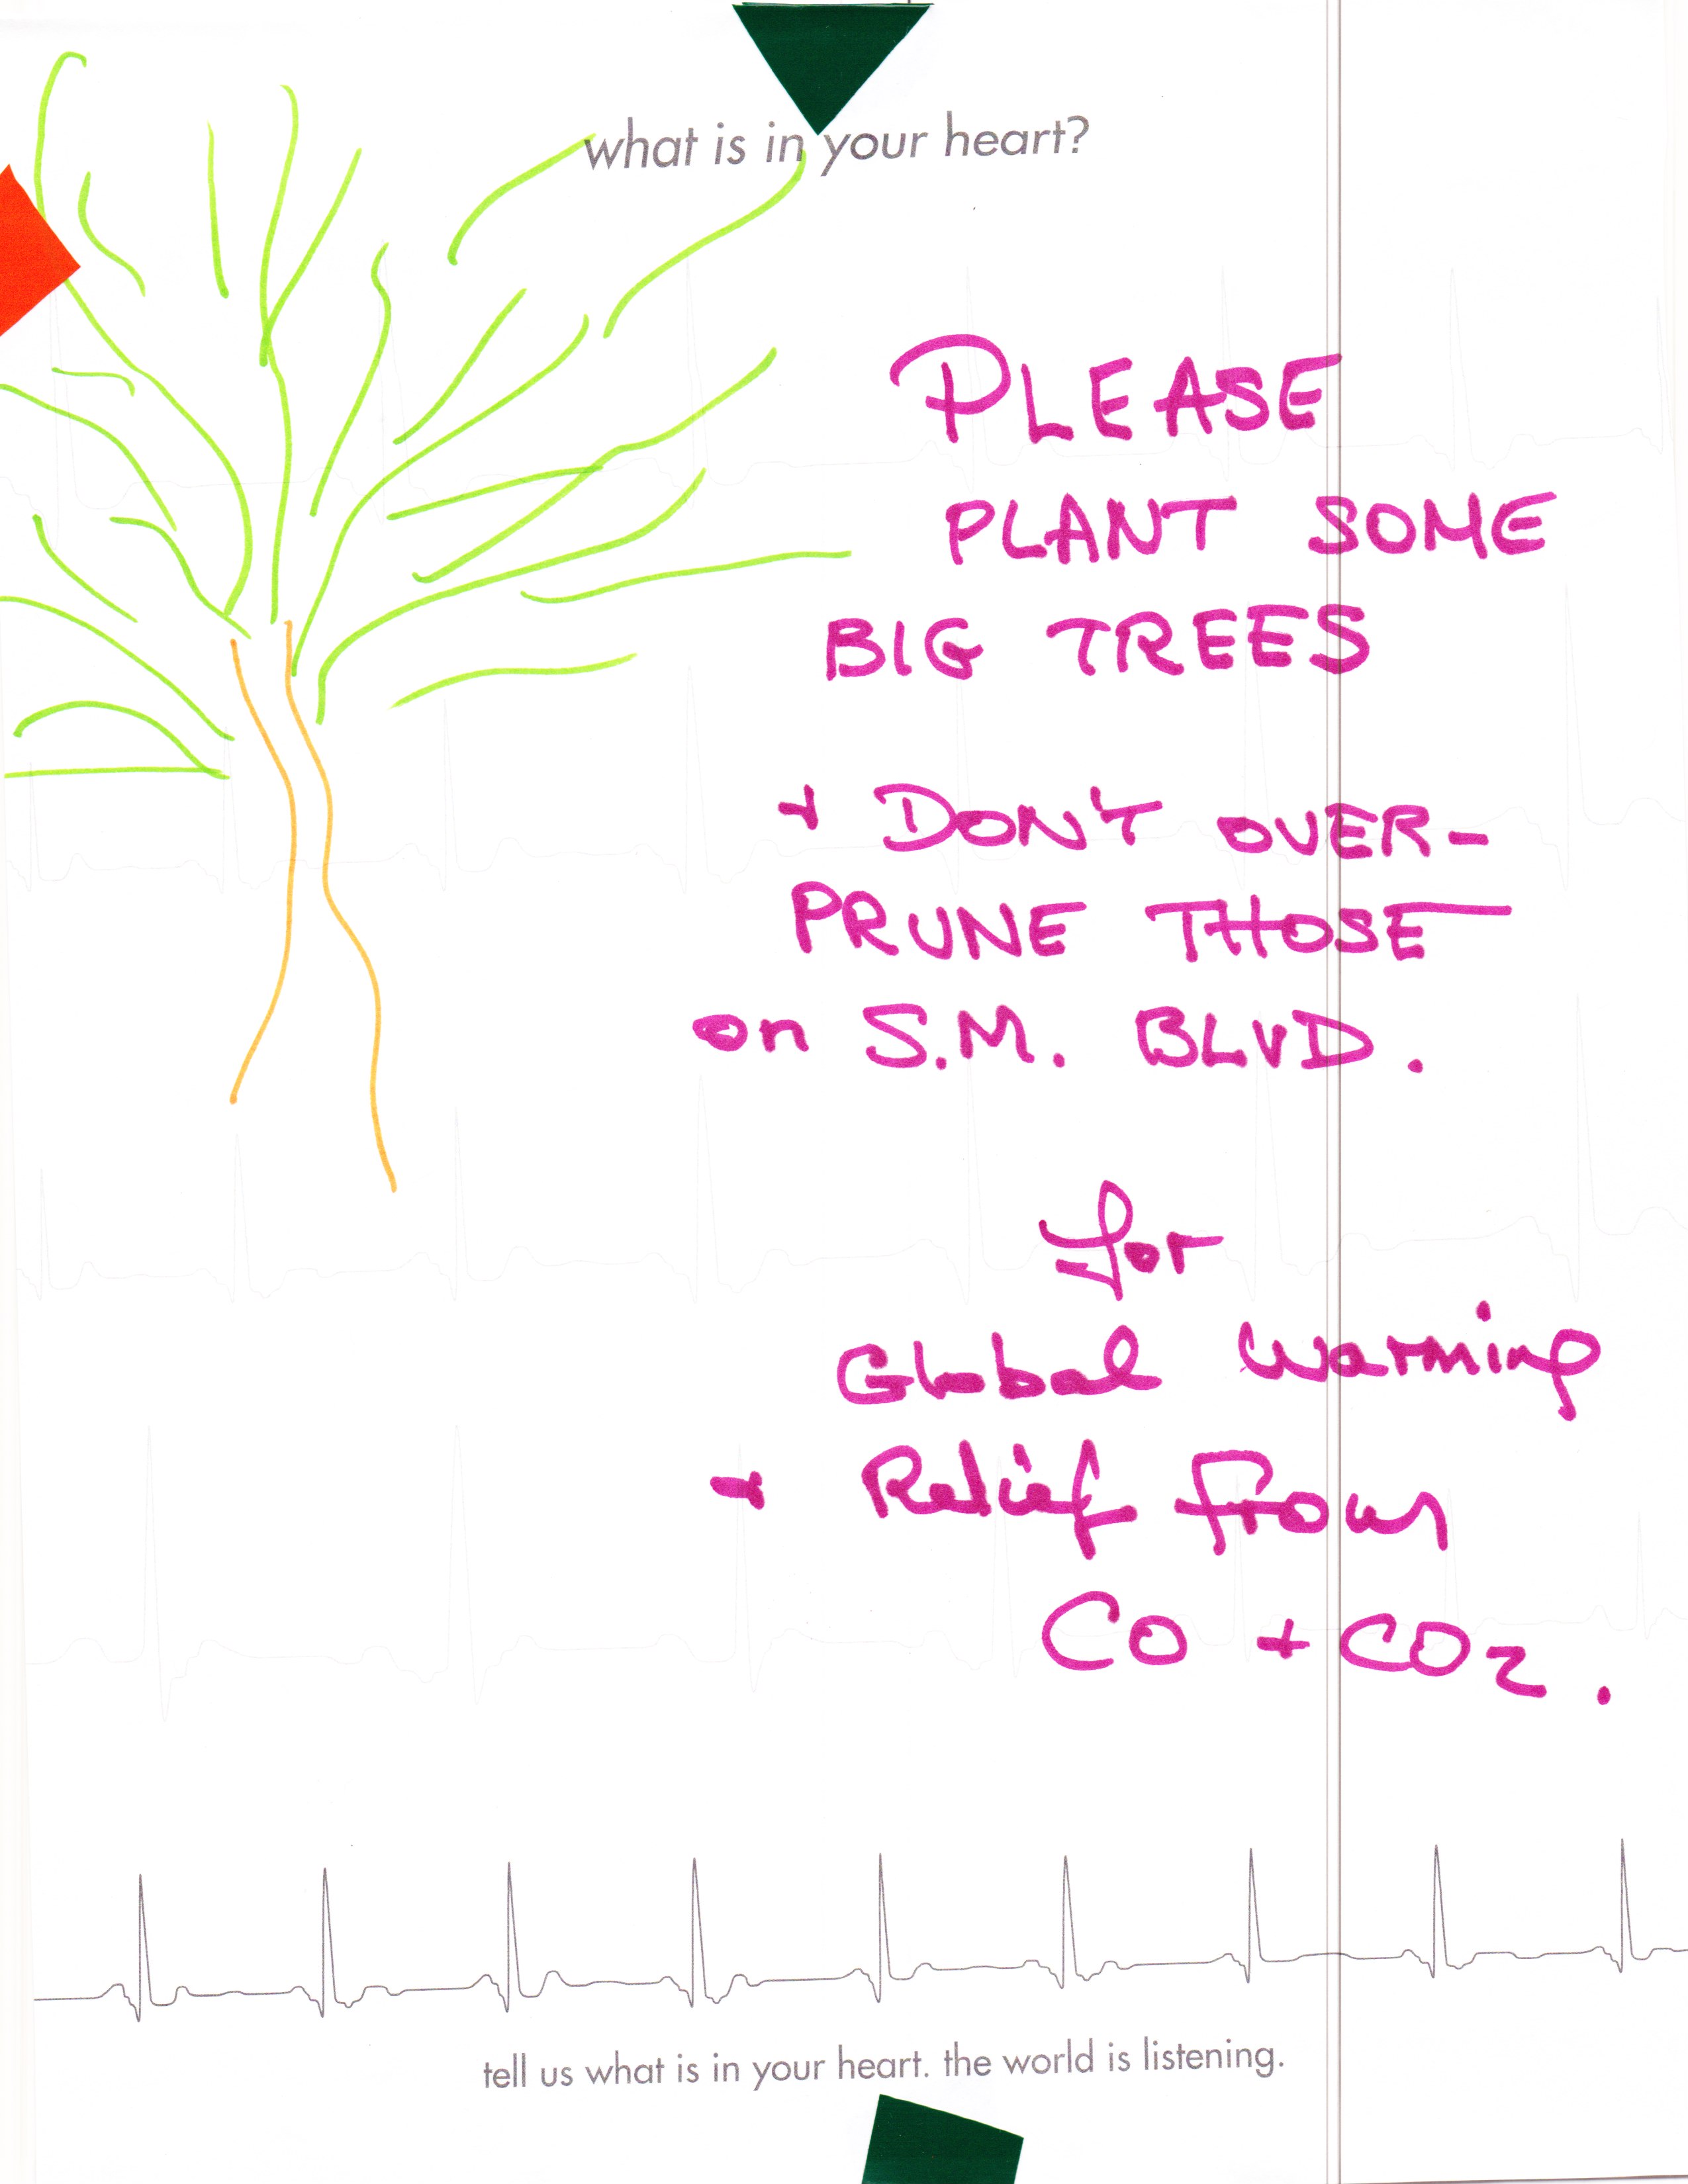 what is in your heart?
PLEASE
PLANT SOME
BIG TREES
+ DON'T OVER-
PRUNE THOSE
on S.M. BLVD.
for
Global Warming
+ Relief from
CO + CO2.
tell us what is in your heart. the world is listening.